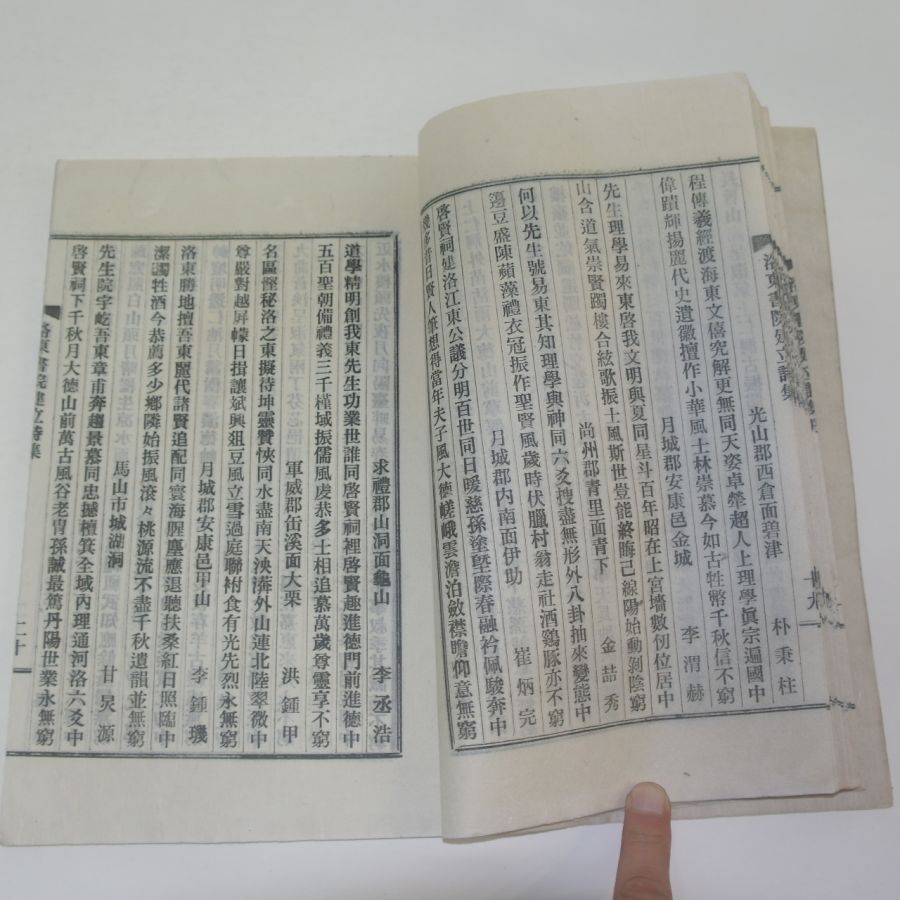 洛東書院建立詩集
十九
光山郡西倉面碧津 朴秉柱
程傳義經渡海東文僖究解更無同天姿卓犖超人上理學眞宗遍國中
偉蹟輝揚麗代史遺徽擅作小華風士林崇慕今如古牲幣千秋信不窮
月城郡安康邑金城 李渭赫
先生理學易來東啓我文明與夏同星斗百年昭在上宮墻數仞位居中
山含道氣崇賢躅樓合絃歌振士風斯世豈能終晦己線陽始動剝陰窮
尚州郡青里面青下 金喆秀
何以先生號易東其知理學與神同六爻搜盡無形外八卦抽來變態中
籩豆盛陳蘋藻禮衣冠振作聖賢風歲時伏臘村翁走社酒鷄豚亦不窮
月城郡內南面伊助 崔炳完
啓賢祠建洛江東公議分明百世同日暖慈孫塗墍際春融衿佩駿奔中
昔日賢人 想得當年夫子風大德嵯峨雲澹泊斂襟瞻仰意無窮
求禮郡山洞面龜山 李丞浩
道學精明創我東先生功業世誰同啓賢祠裡啓賢趣進德門前進德中
五百聖朝備禮義三千槿域振儒風虔恭多士相追慕萬歲尊靈享不窮
軍威郡缶溪面大栗 洪鍾甲
名區慳秘洛之東擬待坤靈贊恊同水盡南天泱漭外山連北陸翠微中
尊嚴對越屏幪日揖讓斌興俎豆風立雪過庭聯袝食有光先烈永無窮
月城郡安康邑甲山 李鍾璣
洛東勝地擅吾東麗代諸賢追配同寰海腥塵應退聽扶桑紅日照臨中
潔蠲牲酒今恭薦多少鄉隣始振風滾々桃源流不盡千秋遺韻並無窮
馬山市城湖洞 甘炅源
先生院宇屹吾東章甫奔趨景慕同忠撼檀箕全域內理通河洛六爻中
啓賢祠下千秋月大德山前萬古風谷老冑孫誠最篤丹陽世業永無窮
洛東書院建立詩集
二十